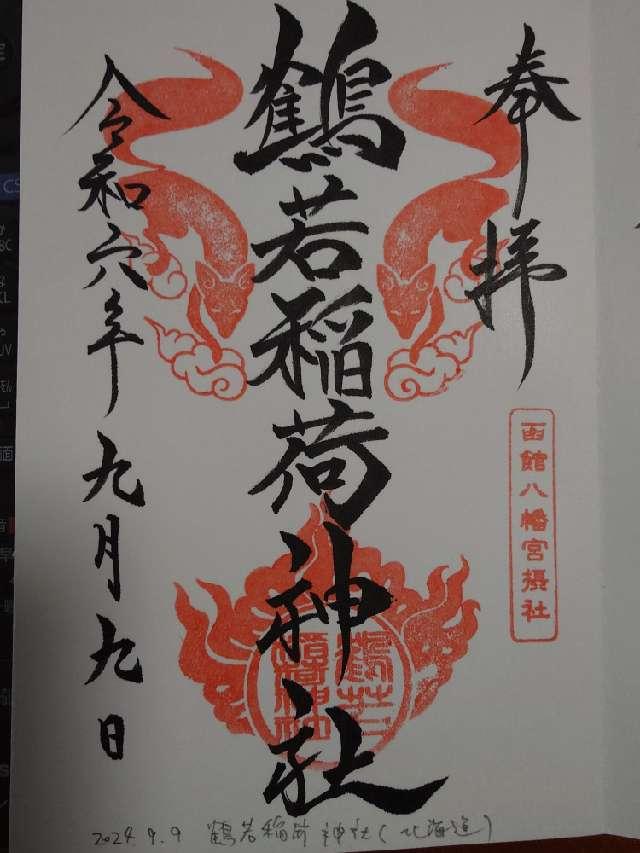 奉拝
函館八幡宮摂社
鶴若稲荷神社
令和六年九月九日
2024.9.9 鶴若稲荷神社(北海道)